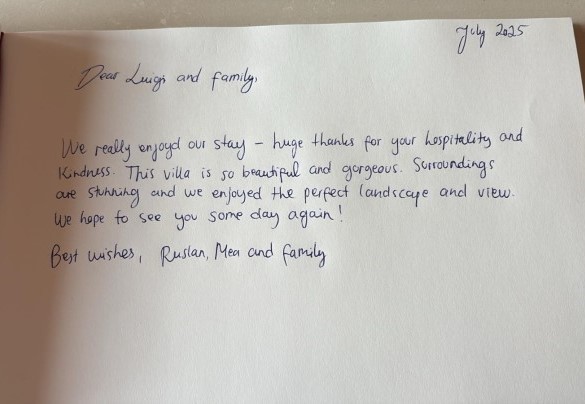 July 2025
Dear Luigi and family,
We really enjoyd our stay – huge thanks for your hospitality and
Kindness. This villa is so beautiful and gorgeous. Surroundings
are stunning and we enjoyed the perfect landscape and view.
We hope to see you some day again!
Best wishes, Ruslan, Mea and family